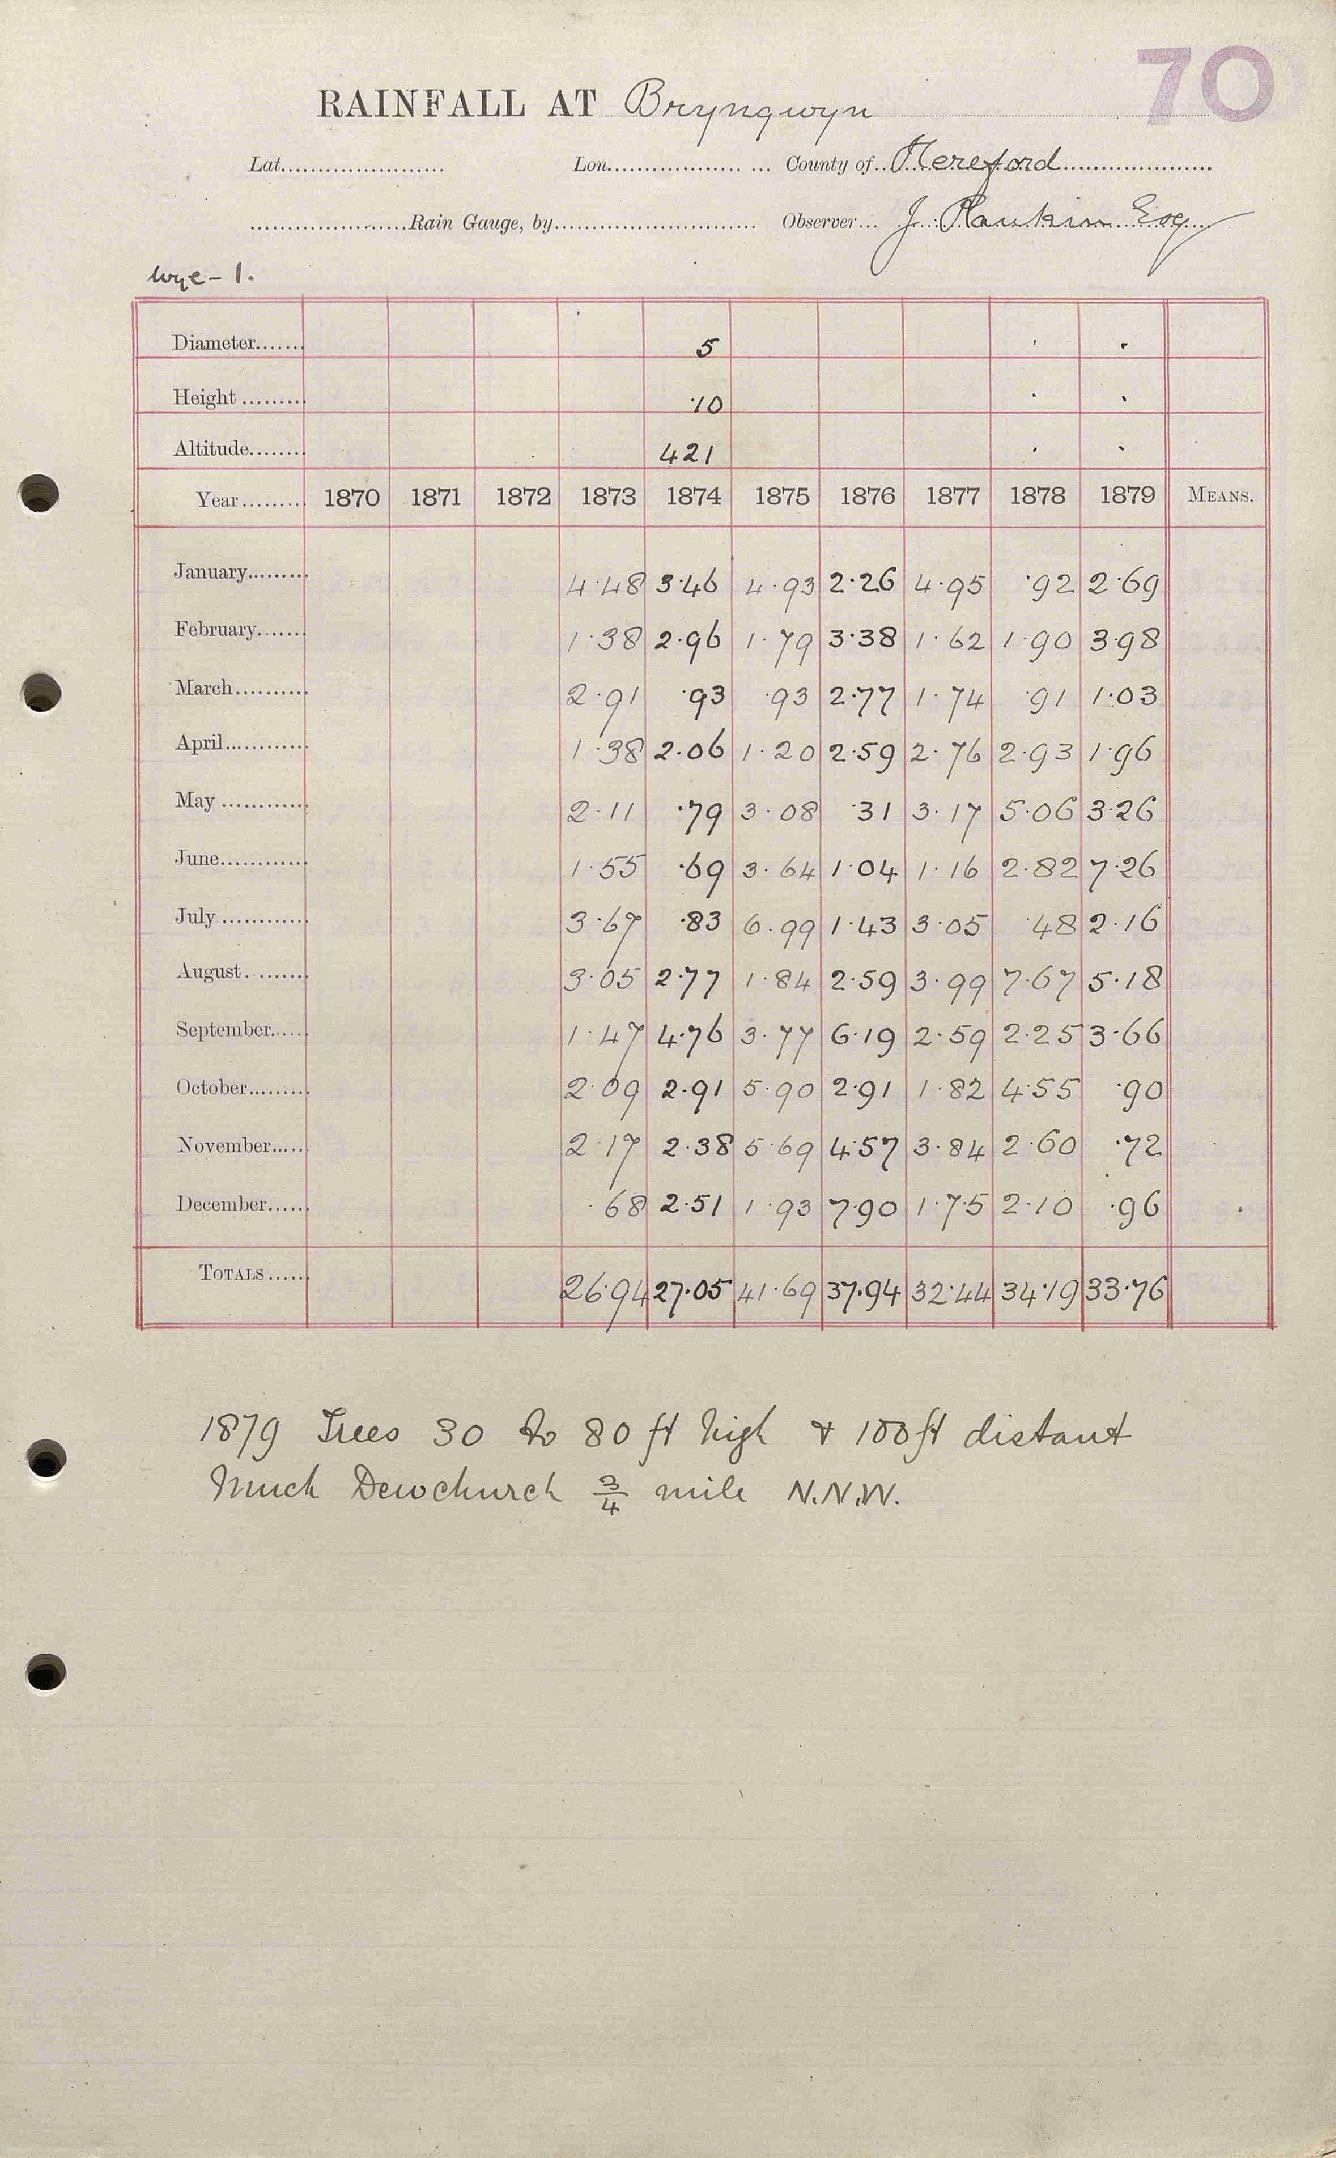 70
RAINFALL AT Bryngwyn
Lat...................... Lon.................. ... County of..Hereford....................
.....................Rain Gauge, by........................... Observer... J. Rankin Esq
Wye - 1.
Diameter....... 5
Height ......... ·10
Altitude........ 421
Year......... 1870 1871 1872 1873 1874 1875 1876 1877 1878 1879 MEANS.
January......... 4·48 3·46 4·93 2·26 4·95 ·92 2·69
February....... 1·38 2·96 1·79 3·38 1·62 1·90 3·98
March.......... 2·91 ·93 ·93 2·77 1·74 ·91 1·03
April............ 1·38 2·06 1·20 2·59 2·76 2·93 1·96
May ............ 2·11 ·79 3·08 ·31 3·17 5·06 3·26
June............ 1·55 ·69 3·64 1·04 1·16 2·82 7·26
July ............ 3·67 ·83 6·99 1·43 3·05 ·48 2·16
August......... 3·05 2·77 1·84 2·59 3·99 7·67 5·18
September..... 1·47 4·76 3·77 6·19 2·59 2·25 3·66
October......... 2·09 2·91 5·90 2·91 1·82 4·55 ·90
November..... 2·17 2·38 5·69 4·57 3·84 2·60 ·72
December...... ·68 2·51 1·93 7·90 1·75 2·10 ·96
TOTALS...... 26·94 27·05 41·69 37·94 32·44 34·19 33·76
1879 Trees 30 to 80 ft high & 100 ft distant
Much Dewchurch 3/4 mile N.N.W.